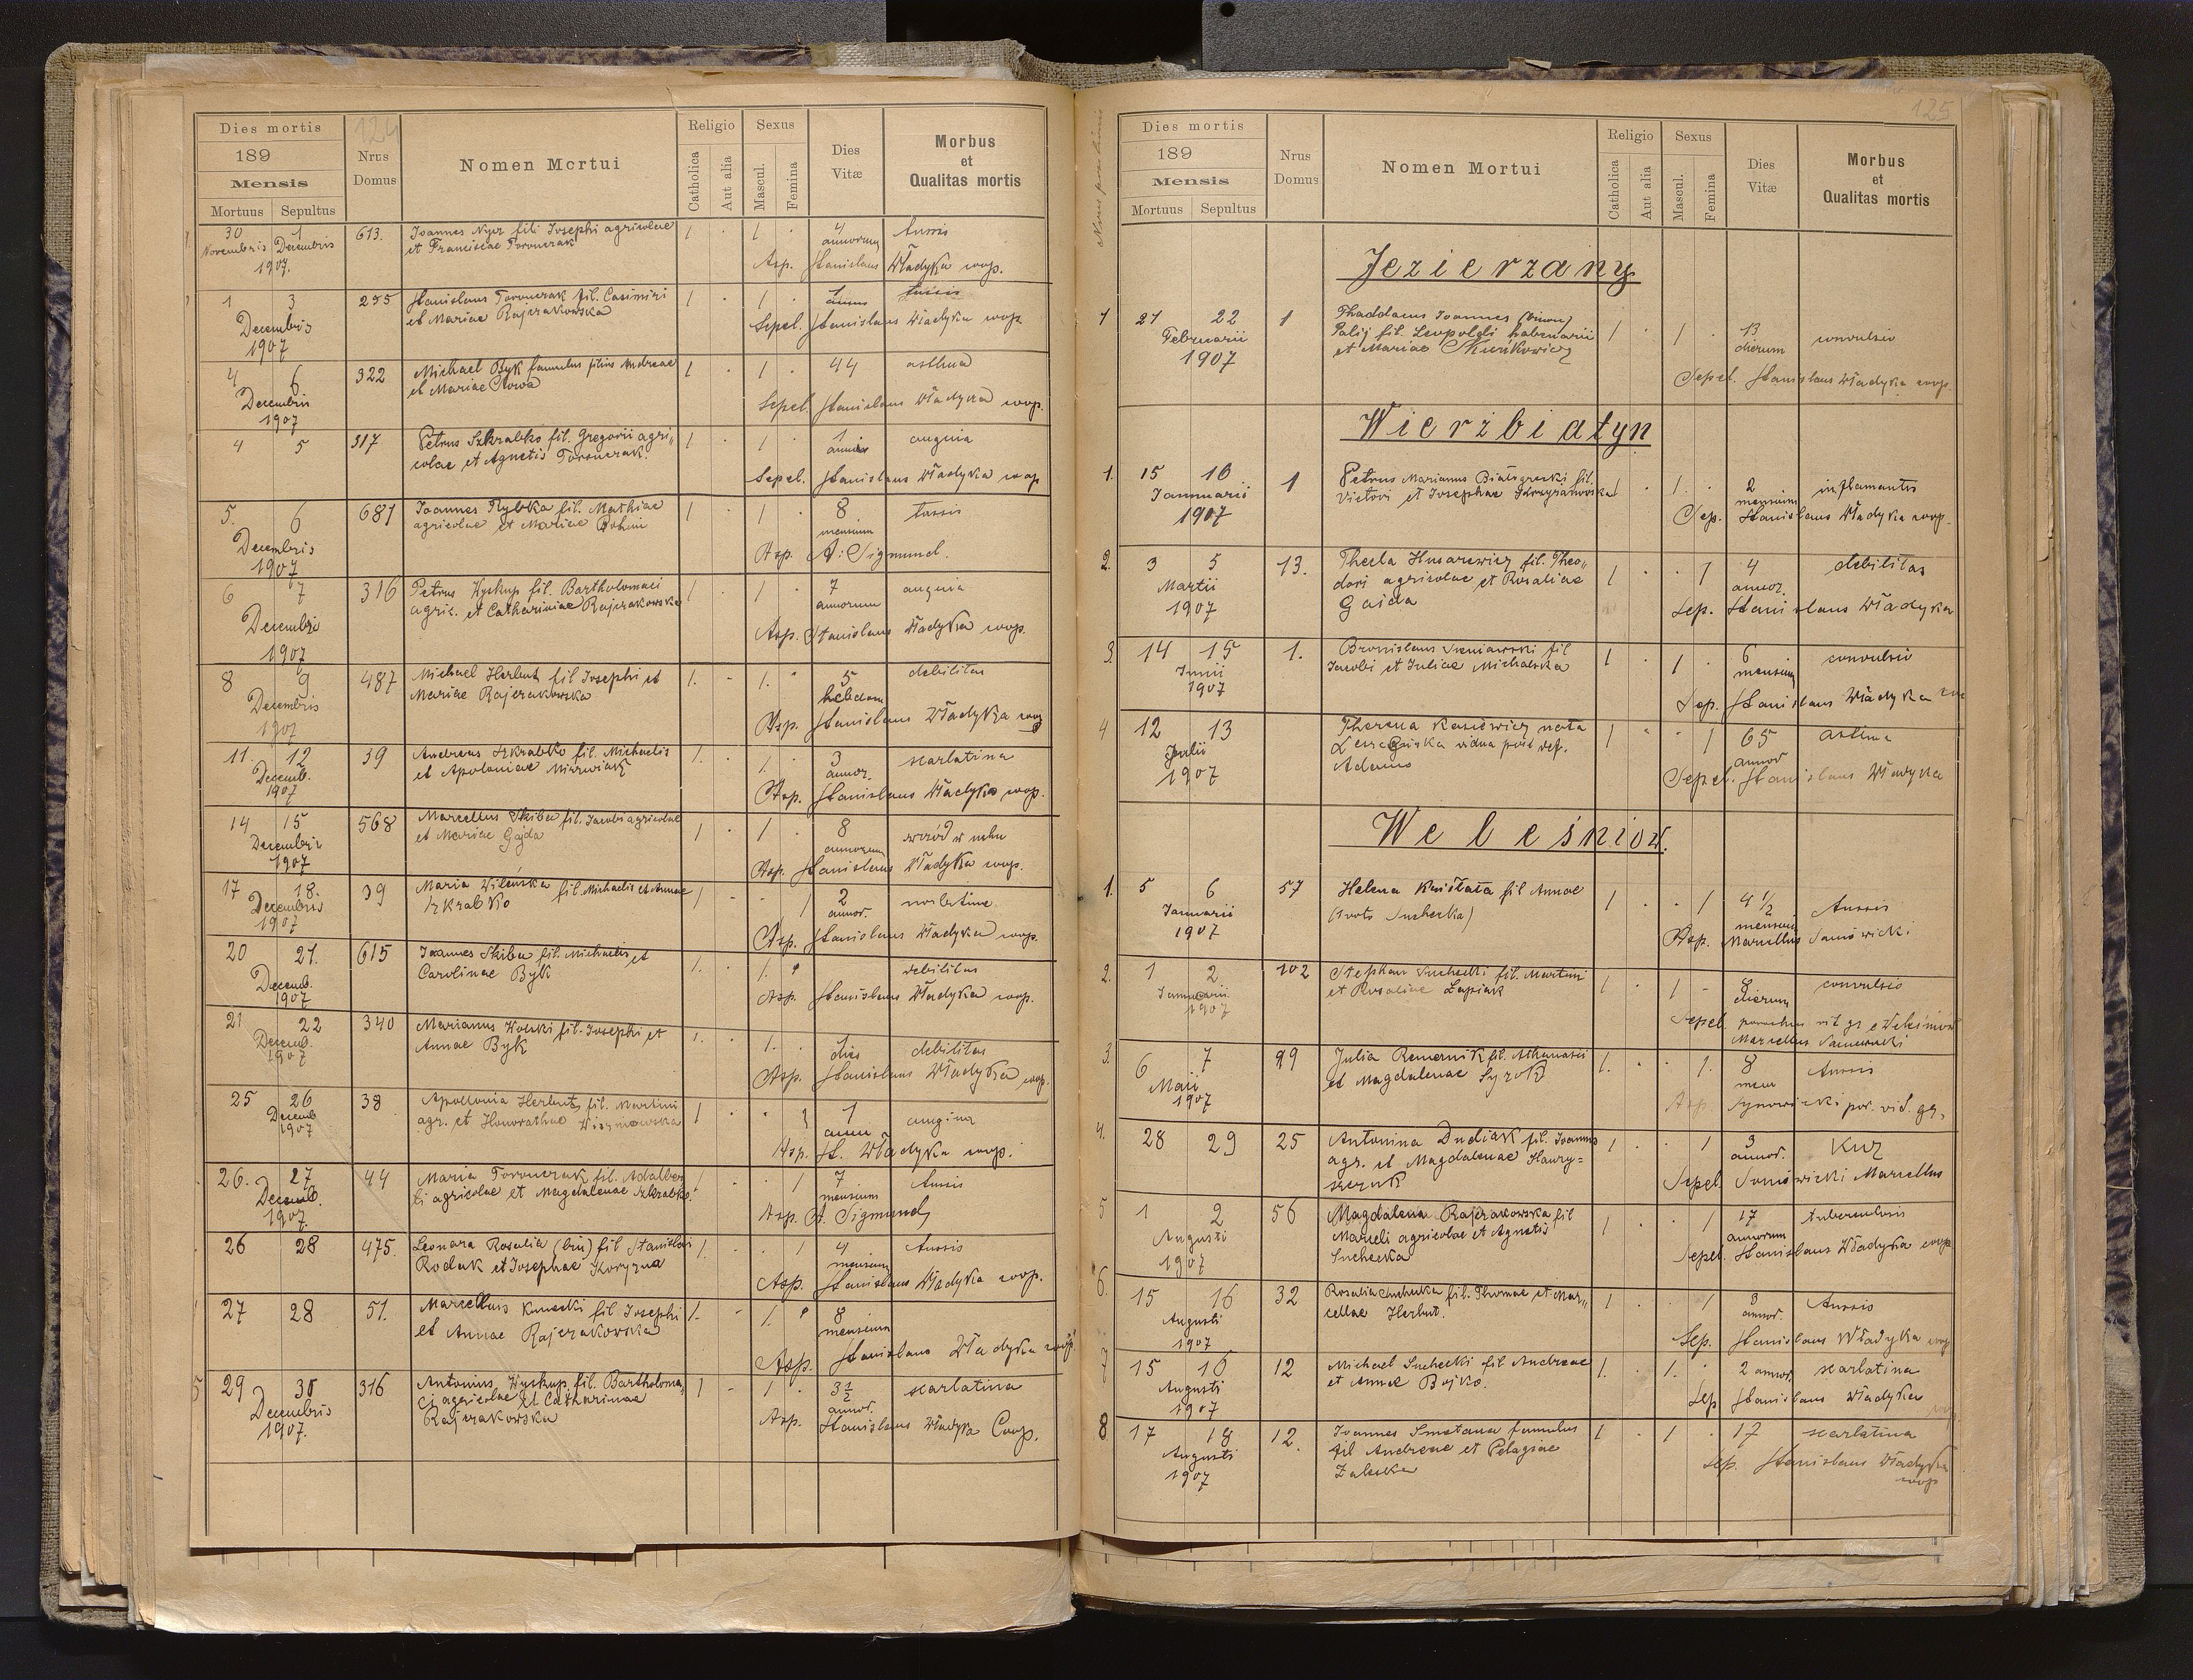 124
Dies mortis
189
Mensis
Mortuus Sepultus
Nrus
Domus
Nomen Mortui
Religio
Catholica
Aut alia
Sexus
Mascul.
Femina
Dies
Vitæ
Morbus
et
Qualitas mortis
30 1 613. Joannes Nyer fili Josephi agricolae 1 . 1 . 4 tussis
Novembris Decembris et Franciscae Toronczak annorum
1907. Asp. Stanislaus Władyka coop.
1 3 295 Stanislaus Toronczak fil. Casimiri 1 . 1 . 1 tussis
Decembris et Mariae Rajzrakowska annus
1907 Sepel. Stanislaus Władyka coop
4 6 322 Michael Byk famulus filius Andreae 1 . 1 . 44 asthma
Decembris et Mariae
1907 Sepel. Stanislaus Władyka coop.
4 5 317 Petrus Szkrabko fil. Gregorii agri„ 1 . 1 . 1 angina
colae et Agnetis Toronczak. annus
Sepel. Stanislaus Władyka coop
5. 6 681 Joannes Rybka fil. Mathiae 1 . 1 . 8 tussis
agricolae et Mariae mensium
Decembris Asp. A. Sigmund.
1907
6 7 316 Petrus Wyskup fil. Bartholomaei 1 . 1 . 7 angina
agric. et Catharinae Rajzrakowska annorum
Decembris Asp. Stanislaus Władyka coop.
1907
8 9 487 Michael Herbut fil Josephi et 1. - 1. . 5 debilitas
Decembris Mariae Rajzrakowska hebdom
1907 Asp. Stanislaus Władyka coop
11. 12 39 Andreas Szkrabko fil. Michaelis 1. 1. 3 scarlatina
Decemb. et Apoloniae annor.
1907 Asp. Stanislaus Władyka coop.
14 15 568 Marcellus Skiba fil. Jacobi agricolae 1 . 1 . 8 wrzód w uchu
Decembris et Mariae Gajda annorum
1907 Asp. Stanislaus Władyka coop.
17 18. 39 Maria Wilińska fil. Michaelis et Annae 1 . . 1 2
Decembris Szkrabko annor.
1907 Asp. Stanislaus Władyka coop.
20 21. 615 Joannes Skiba fil. Michaelis et 1. . 1. debilitas
Decemb. Carolinae Byk
1907 Asp. Stanislaus Władyka coop.
21 22 340 Marianus Wolski fil. Josephi et 1. . 1. . 1 debilitas
Decemb. Annae Byk dies
1907 Asp. Stanislaus Władyka coop.
25 26 38 Apollonia Herbut fil. Martini 1 . . 1 1 angina
Decemb agr. et Honorathae Wiszniowska anni
1907 Asp. St. Władyka coop.
26. 27 44 Maria Toronczak fil. Adalber 1 . . 1 7 tussis
Decemb. ti agricolae et Magdalenae Szkrabko mensium
1907. Asp. A. Sigmund
26 28 475. Leonara Rosalia (bin) fil Stanislai 1. . . 1 4 tussis
Rodak et Josephae Koryzna mensium
Asp. Stanislaus Władyka coop.
27 28 51. Marcellus fil Josephi 1. - 1. 8
et Annae Rajzrakowska mensium
Asp. Stanislaus Władyka coop.
29 30 316 Antonius Wyskup fil. Bartholoma„ 1 - 1 . 3½ scarlatina
Decembris ei agricolae et Catharinae annor.
1907. Rajzrakowska Asp. Stanislaus Władyka Coop.
125
Dies mortis
189
Mensis
Mortuus Sepultus
Nrus
Domus
Nomen Mortui
Religio
Catholica
Aut alia
Sexus
Mascul.
Femina
Dies
Vitæ
Morbus
et
Qualitas mortis
Jezierzany
1 21 22 1 Thaddaeus Joannes (binom)
Februarii Palij fil. Leopoldi 1 . 1 . 13 convulsio
1907 et Mariae dierum
Sepel. Stanislaus Władyka coop.
Wierzbiatyn
1. 15 16 1 Petrus Marianus fil. 1 . 1. . 2 inflamantis
Januarii Victori et Josephae Krzyzanowska mensium
1907 Sep. Stanislaus Władyka coop.
2. 3 5 13. Thecla Husarewicz fil. Theo„ 1 . . 1 4 debilitas
Martii dori agricolae et Rosaliae annor.
1907 Gajda Sep. Stanislaus Władyka
3. 14 15 1. Bronislaus fil 1 . 1 . 6 convulsio
Junii Jacobi et Juliae Michalska mensium
1907 Sep. Stanislaus Władyka
4 12 13 Theresa nata 1 . . 1 65 asthma
Julii vidua post def. annor
1907 Adamo Sepel. Stanislaus Władyka
Weleśniow.
1. 5 6 57 Helena fil Annae 1 . . 1 4½ tussis
Januarii (voto Suchecka) mensium
1907 Asp. Marcellus
2. 1 2 102 Stephan Suchecki fil. Martini 1 . 1 - 8 convulsio
Januarii et Rosaliae Lapiak dierum
1907 Sepel. parochus rit gr e Weleśniow
Marcellus
3. 6 7 99 Julia fil. Athanasii 1. . . 1. 8 tussis
Maii et Magdalenae mens
1907 Asp. par. rit. gr.
4. 28 29 25 Antonina Dudiak fil. Joannis 1 . . 1 3 Kur
agr. et Magdalenae Hawry= annor.
szczuk Sepel. Marcellus
5 1 2 56 Magdalena Rajzrakowska fil 1 . . 1 17 tuberculosis
Augusti Marceli agricolae et Agnetis annorum
1907 Suchecka Sepel. Stanislaus Władyka coop
6. 15 16 32 Rosalia Suchecka fil. Thomae et Mar„ 1 . . 1 3 tussis
Augusti cellae Herbut. annor.
1907 Sep. Stanislaus Władyka coop
7 15 16 12 Michael Suchecki fil Andreae 1. . 1. . 2 annor. scarlatina
Augusti et Annae Bojko.
1907 Sep Stanislaus Władyka
8 17 18 12. Joannes Smetana famulus 1 . 1 . 17 scarlatina
Augusti fil Andreae et Pelagiae
1907 Zaleska Sep. Stanislaus Władyka
coop